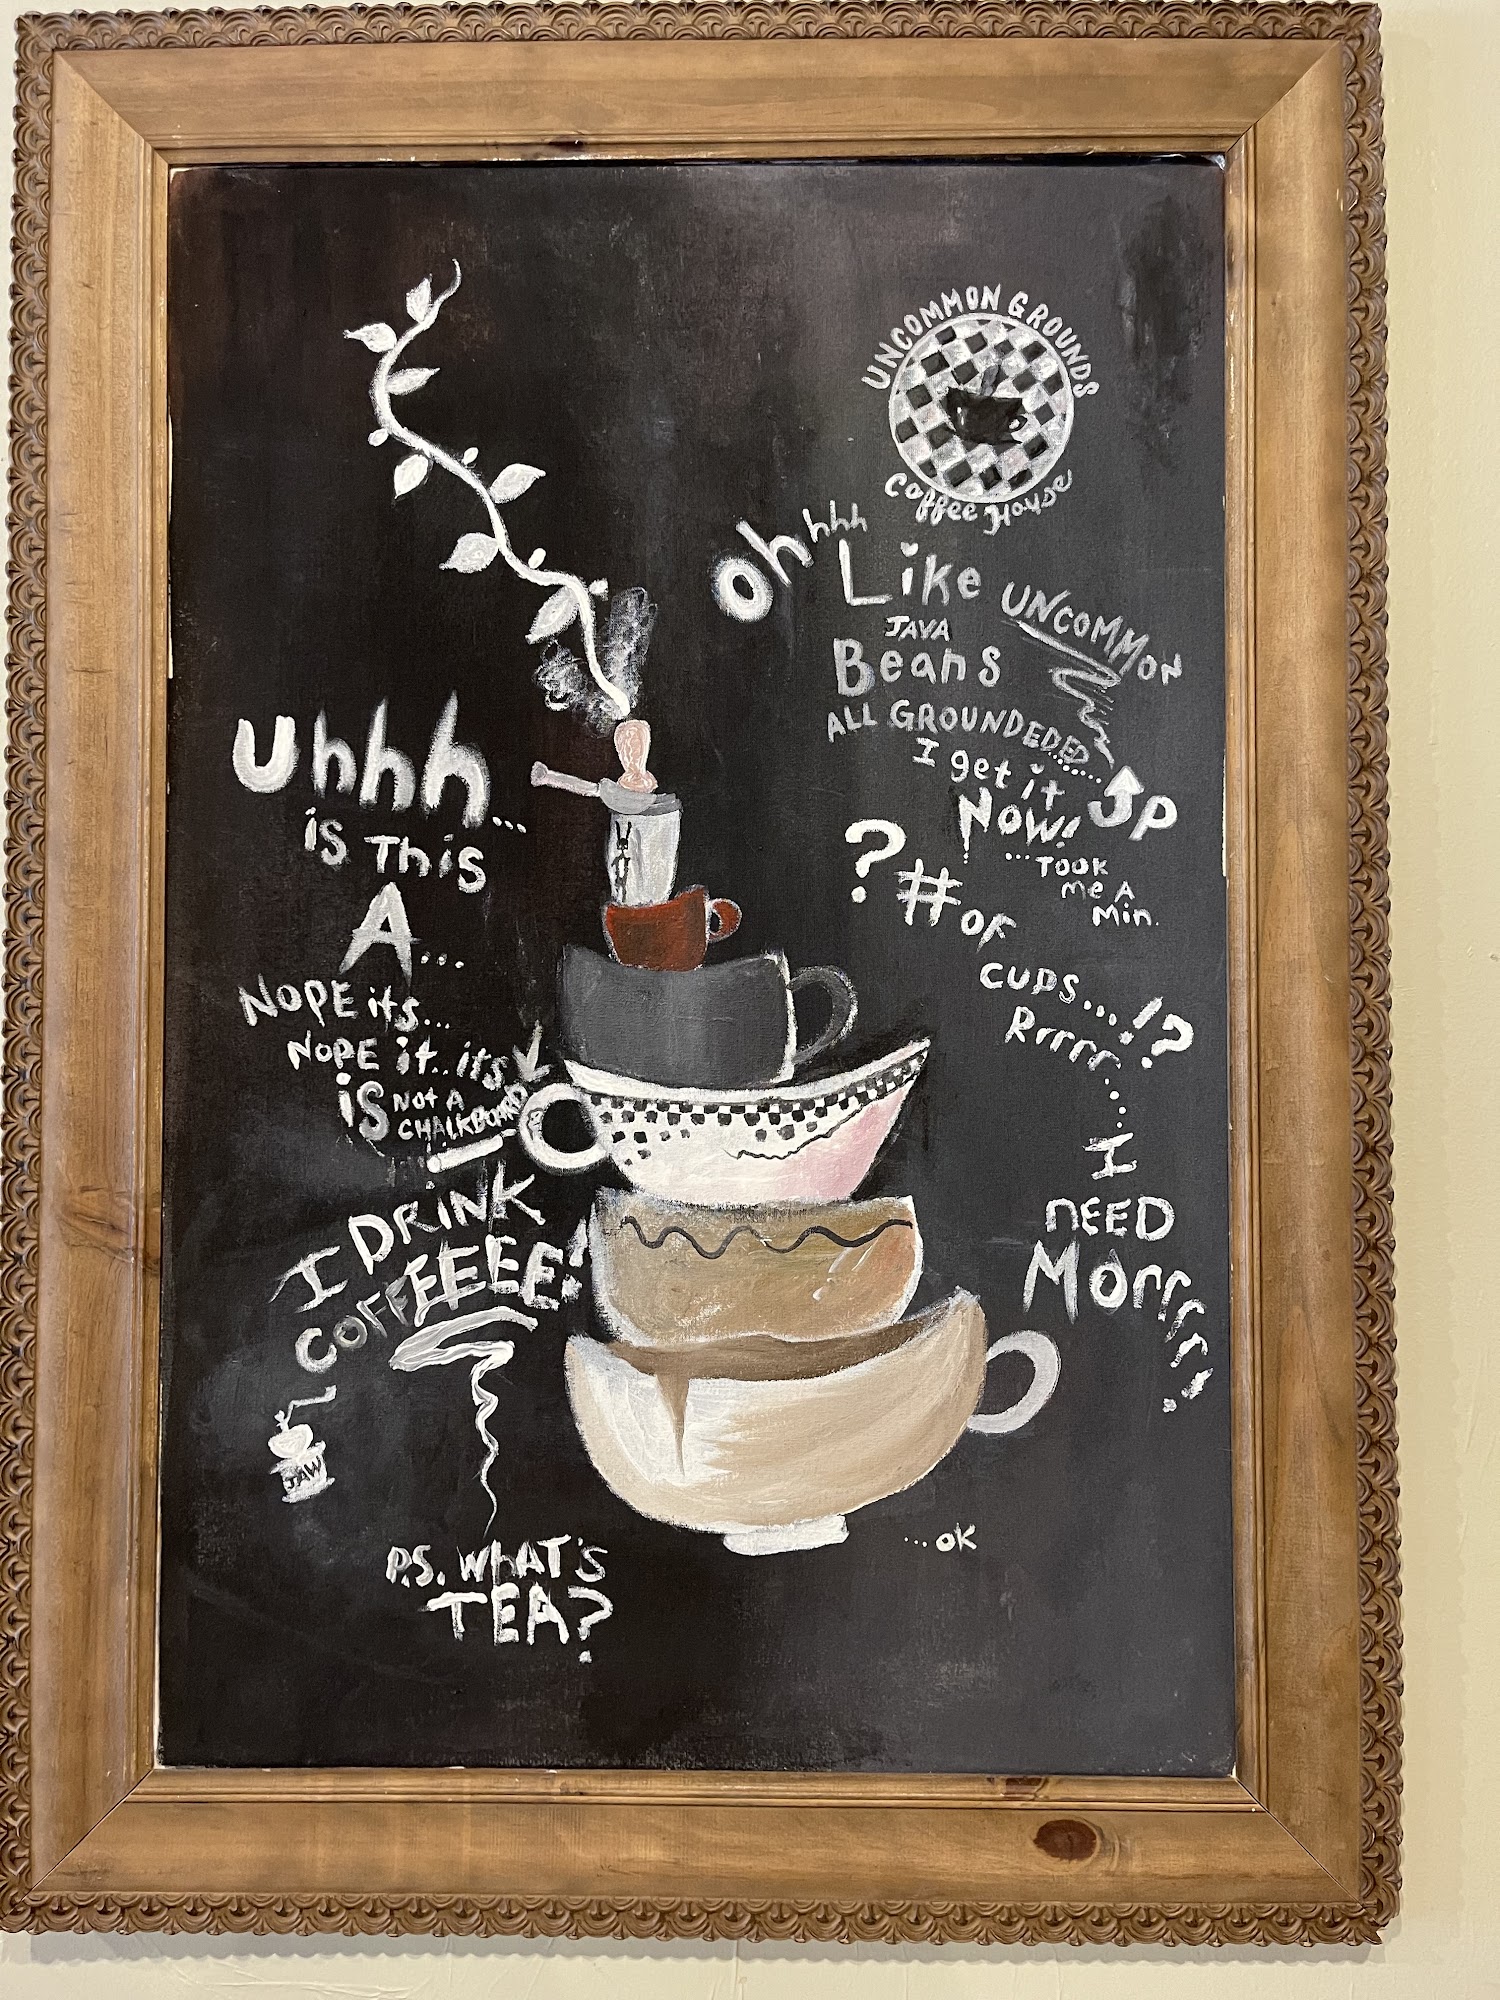 UNCOMMON GROUNDS
Coffee House
Ohhhhh
Like UNCOMMON
JAVA
Beans
ALL GROUNDEDED........UP
I get it
NOW!
...TOOK
me A
Min.
? # OF
CUPS...!?
Rrrrr.....I
NEED
Morrrrr!
Uhhh...
is This
A...
NOPE its...
NOPE it..its
is NOT A
CHALKBOARD
I DRINK
COFFEEEEE!
JAW
P.S. WHAT'S
TEA?
...OK